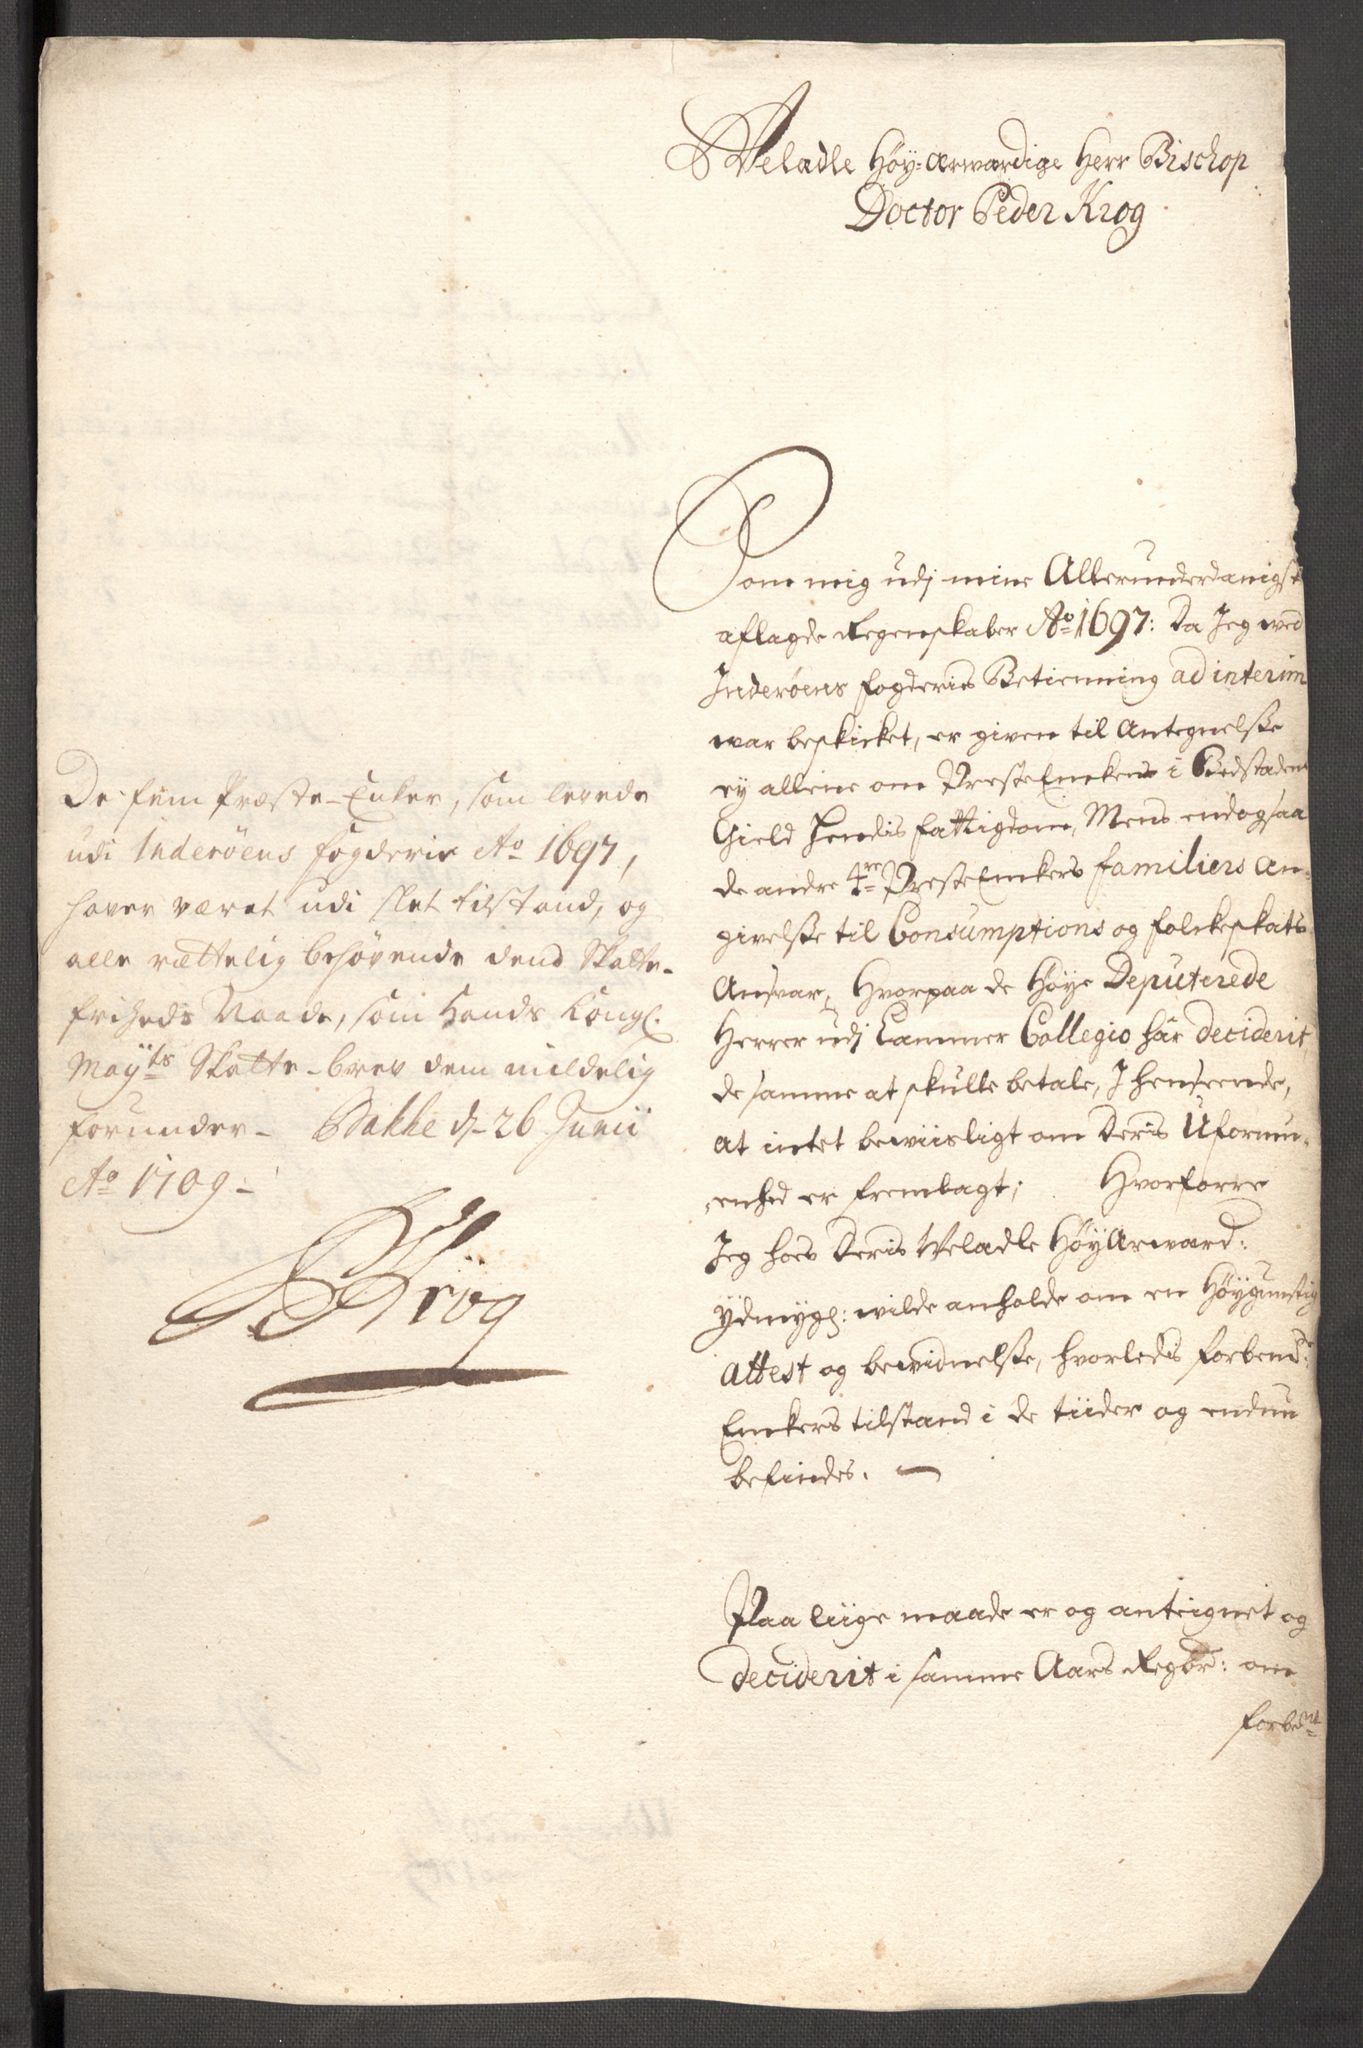 Welædle Høy-ærwærdige Herr Bischop
Doctor Peder Krog
Som mig udj mine Allerunderdanigst
aflagde Regenskaber Ao 1697: Da Jeg wed
Inderøens fogderies Betienning ad interim
war beskicket, er given til Antegnelsse
ey allene om Preste Enckens i Bedstadens
Gield hendis fattigdom, Mens endogsaa
de andre 4re Preste Enckers familiers an-
givelsse til Consumptions og folckeskats
Ansvar, Hvorpaa de Høye Deputerede
Herrer udj Cammer Collegio har deciderit,
de samme at skulle betale, J henseende,
at intet beviisligt om Deris Uformu-
enhed er fremlagt; Hvorforre
Jeg hoes Deris Welædle HøyÆrwærd:
Ydmygl: wilde anholde om en Høygunstig
Attest og bevidnelsse, hvorledis forbemd:te
Enckers tilstand i de tiider og endnu
befindes.
Paa liige maade er og anteignet og
deciderit i samme Aars Regbr: om
forbente
De fem Præste-Enker, som levede
udi Inderøens fogderie Ao 1697,
haver været udi slet tilstand, og
alle rættelig behøvende dend Skatte-
friheds Naade, som Hands Kongl.
Mayts Skatte-brev dem mildelig
forunder- Bakke d. 26 Junii
Ao 1709-
P Krog